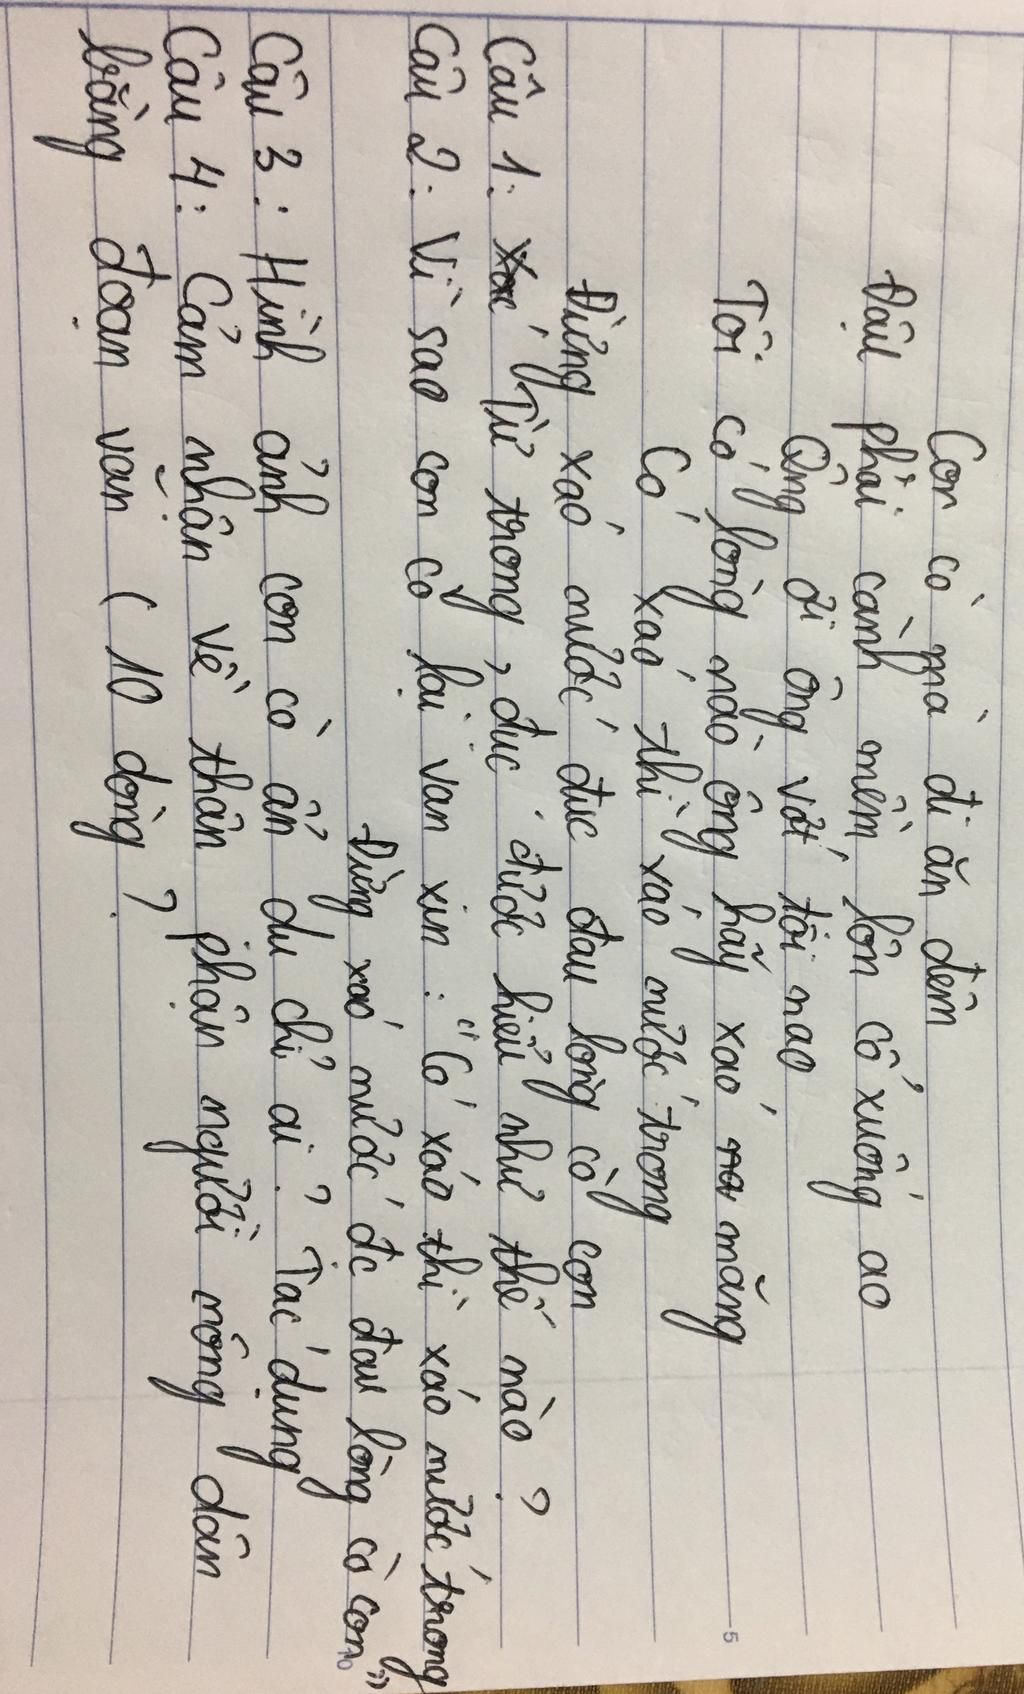 Con cò mà đi ăn đêm
Đậu phải cành mềm, lộn cổ xuống ao
Ông ơi ông vớt tôi nao
Tôi có lòng nào ông hãy xáo măng
Có xáo thì xáo nước trong
Đừng xáo nước đục đau lòng cò con
Câu 1: Từ trong, đục được hiểu như thế nào?
Câu 2: Vì sao con cò lại van xin: "Có xáo thì xáo nước trong
Đừng xáo nước đc đau lòng cò con"
Câu 3: Hình ảnh con cò ẩn dụ chỉ ai? Tác dụng
Câu 4: Cảm nhận về thân phận người nông dân
bằng đoạn văn (10 dòng?
5
10